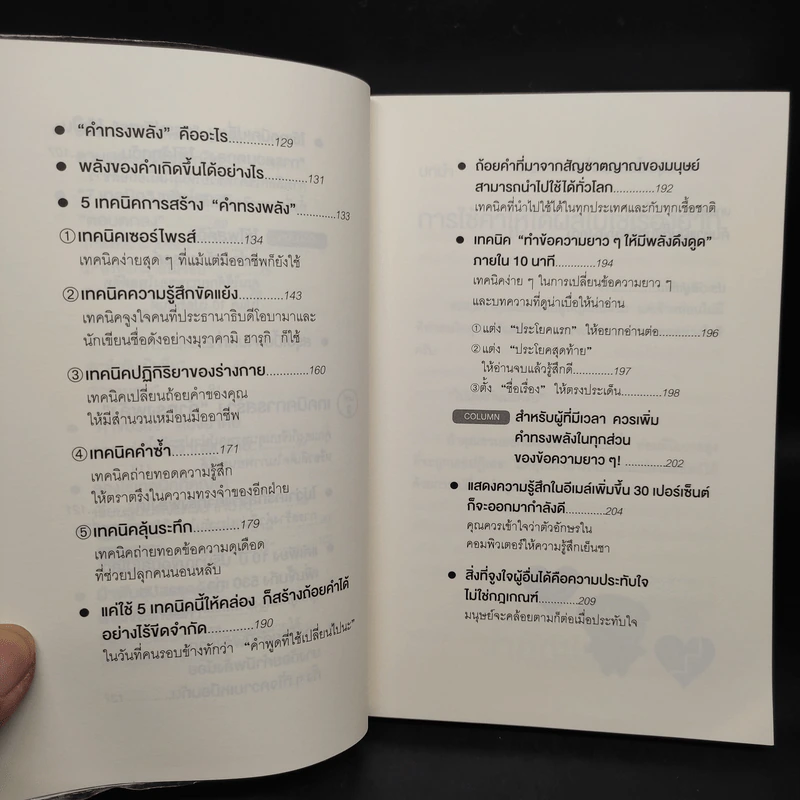 ● “คำทรงพลัง” คืออะไร.............129
● พลังของคำเกิดขึ้นได้อย่างไร............131
● 5 เทคนิคการสร้าง “คำทรงพลัง”............133
①เทคนิคเซอร์ไพรส์............134
เทคนิคง่ายสุด ๆ ที่แม้แต่มืออาชีพก็ยังใช้
②เทคนิคความรู้สึกขัดแย้ง............143
เทคนิคจูงใจคนที่ประธานาธิบดีโอบามาและ
นักเขียนชื่อดังอย่างมุราคามิ ฮารุกิ ก็ใช้
③เทคนิคปฏิกิริยาของร่างกาย............160
เทคนิคเปลี่ยนถ้อยคำของคุณ
ให้มีสำนวนเหมือนมืออาชีพ
④เทคนิคคำซ้ำ.............171
เทคนิคถ่ายทอดความรู้สึก
ให้ตราตรึงในความทรงจำของอีกฝ่าย
⑤เทคนิคลุ้นระทึก............179
เทคนิคถ่ายทอดข้อความดุเดือด
ที่ช่วยปลุกคนนอนหลับ
● แค่ใช้ 5 เทคนิคนี้ให้คล่อง ก็สร้างถ้อยคำได้
อย่างไร้ขีดจำกัด............190
ในวันที่คนรอบข้างทักว่า “คำพูดที่ใช้เปลี่ยนไปนะ”
● ถ้อยคำที่มาจากสัญชาตญาณของมนุษย์
สามารถนำไปใช้ได้ทั่วโลก............192
เทคนิคที่นำไปใช้ได้ในทุกประเทศและกับทุกเชื้อชาติ
● เทคนิค “ทำข้อความยาว ๆ ให้มีพลังดึงดูด”
ภายใน 10 นาที............194
เทคนิคง่าย ๆ ในการเปลี่ยนข้อความยาว ๆ
และบทความที่ดูน่าเบื่อให้น่าอ่าน
①แต่ง “ประโยคแรก” ให้อยากอ่านต่อ............196
②แต่ง “ประโยคสุดท้าย”
ให้อ่านจบแล้วรู้สึกดี............197
③ตั้ง “ชื่อเรื่อง” ให้ตรงประเด็น............198
COLUMN สำหรับผู้ที่มีเวลา ควรเพิ่ม
คำทรงพลังในทุกส่วน
ของข้อความยาว ๆ! ............202
● แสดงความรู้สึกในอีเมล์เพิ่มขึ้น 30 เปอร์เซ็นต์
ก็จะออกมากำลังดี............204
คุณควรเข้าใจว่าตัวอักษรใน
คอมพิวเตอร์ให้ความรู้สึกเย็นชา
● สิ่งที่จูงใจผู้อื่นได้คือความประทับใจ
ไม่ใช่กฎเกณฑ์............209
มนุษย์จะคล้อยตามก็ต่อเมื่อประทับใจ